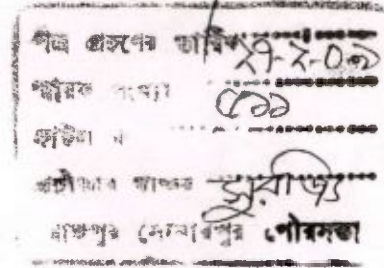 পত্র গ্রহণের তারিখ ২৭-২-০৯
স্মারক সংখ্যা ৫৯৯
ফাইল নং
গ্রহীতার স্বাক্ষর সুরজিৎ
রাজপুর সোনারপুর পৌরসভা